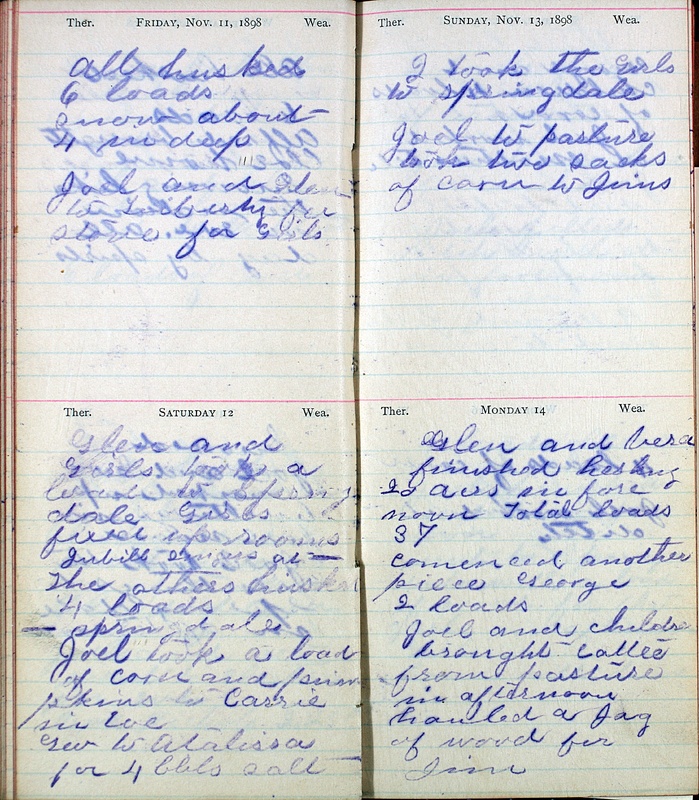 Ther. FRIDAY, NOV. 11, 1898 Wea.
All husked
6 loads
snow about
4 in deep
Joel and Glen
to Liberty for
stove for Girls
Ther. SATURDAY 12 Wea.
Glen and
Girls took a
load to Spring
dale Girls
fixed up rooms
Jubill at
The others husked
4 loads
springdale
Joel took a load
of corn and pum
pkins to Carrie
in Eve
Geo to Atalissa
for 4 bbls salt
Ther. SUNDAY, NOV. 13, 1898 Wea.
I took the Girls
to springdale
Joel to pasture
took two sacks
of corn to Jims
Ther. MONDAY 14 Wea.
Glen and Vera
finished husking
22 acrs in fore
noon Total loads
37
comenced another
piece George
2 loads
Joel and childre
brought cattle
from pasture
in afternoon
hauled a Jag
of wood for
Jim